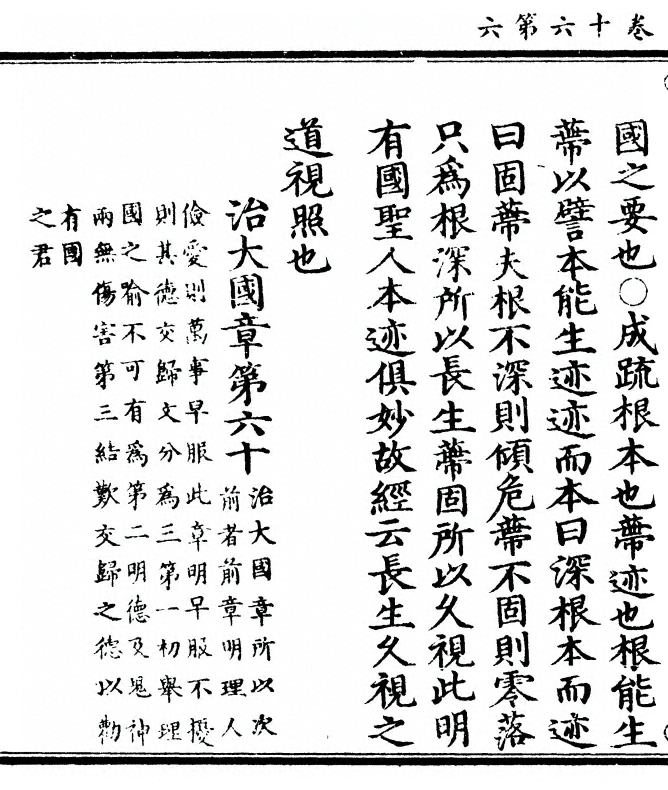 卷十六第六
國之要也○成疏根本也蔕迹也根能生
蔕以譬本能生迹迹而本曰深根本而迹
曰固蔕夫根不深則傾危蔕不固則零落
只為根深所以長生蔕固所以久視此明
有國聖人本迹俱妙故經云長生久視之
道視照也
治大國章第六十
治大國章所以次
前者前章明理人
儉愛則萬事早服此章明早服不擾
則其德交歸文分為三第一初舉理
國之喻不可有為第二明德及鬼神
兩無傷害第三結歎交歸之德以勸
有國
之君